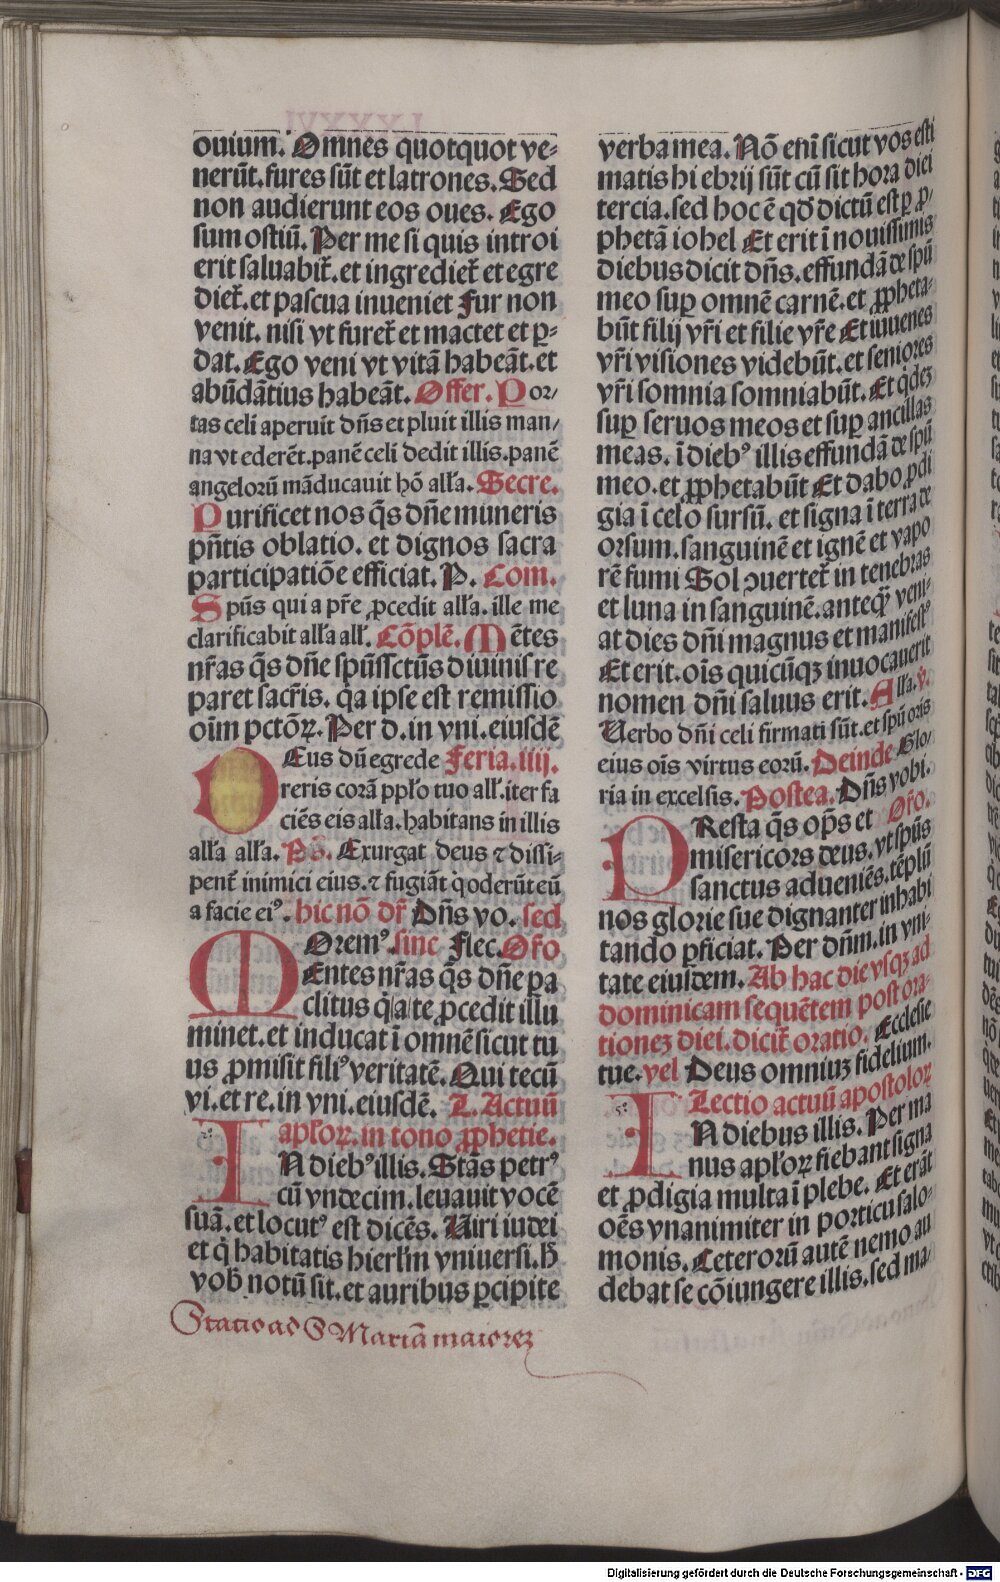 ouium. Omnes quotquot ve⸗
nerūt. fures sūt et latrones. Sed
non audierunt eos oues. Ego
sum ostiū. Per me si quis introi
erit saluabit᷑. et ingrediet᷑ et egre
diet᷑. et pascua inueniet Fur non
venit. nisi vt furet᷑ et mactet et ꝑ⸗
dat. Ego veni vt vitā habeāt. et
abūdātius habeāt. Offer. Por⸗
tas celi aperuit dn̄s et pluit illis man⸗
na vt ederēt. panē celi dedit illis. panē
angelorū māducauit hō all'a. Secre.
Purificet nos q̄s dn̄e muneris
pn̄tis oblatio. et dignos sacra
participatiōe efficiat. P. Com.
Spūs qui a pr̄e ꝓcedit all'a. ille me
clarificabit all'a all'. Cōplē. Mētes
nr̄as q̄s dn̄e spūssctūs diuinis re
paret sacr̄is. q̄a ipse est remissio
oīm pctōꝝ. Per d. in vni. eiusdē
DEus dū egrede Feria. iiij.
reris corā pplo tuo all'. iter fa
ciēs eis all'a. habitans in illis
all'a all'a. Ps̄. Exurgat deus ⁊ dissi⸗
pent᷑ inimici eius. ⁊ fugiāt q̇ oderūt eū
a facie eiꝰ. hic nō dr̄ Dn̄s vo. sed
Oremꝰ. sine Flec. Or̄o
MEntes nr̄as q̄s dn̄e pa
clitus q̇ a te ꝓcedit illu
minet. et inducat ī omnē sicut tu
us ꝓmisit filiꝰ veritatē. Qui tecū
vi. et re. in vni. eiusdē. L. Actuū
apl'oꝝ. in tono ꝓphetie.
IN diebꝰ illis. Stās petrꝰ
cū vndecim. leuauit vocē
suā. et locutꝰ est dicēs. Uiri iudei
et q̇ habitatis hierl'm vniuersi. h̄
vob̄ notū sit. et auribus ꝑcipite
Statio ad S Mariā maiorez
verba mea. Nō em̄ sicut vos esti
matis hi ebrij sūt cū sit hora diei
tercia. sed hoc ē qd̄ dictū est ꝑ ꝓ⸗
phetā iohel Et erit ī nouissimis
diebus dicit dn̄s. effundā de spū
meo suꝑ omnē carnē. et ꝓpheta⸗
būt filij vr̄i et filie vr̄e Et iuuenes
vr̄i visiones videbūt. et seniores
vr̄i somnia somniabūt. Et q̇dez
suꝑ seruos meos et suꝑ ancillas
meas. ī diebꝰ illis effundā de spū
meo. et ꝓphetabūt Et dabo ꝓdi
gia ī celo sursū. et signa ī terra de
orsum. sanguinē et ignē et vapo
rē fumi Sol ↄuertet᷑ in tenebras
et luna in sanguinē. anteq̄ȝ veni⸗
at dies dn̄i magnus et manifestꝰ
Et erit. oīs quicūqȝ inuocauerit
nomen dn̄i saluus erit. All'a. v̄.
Uerbo dn̄i celi firmati sūt. et spū oris
eius oīs virtus eorū. Deinde Glo⸗
ria in excelsis. Postea. Dn̄s vobi.
PResta q̄s op̄s et Or̄o.
misericors deus. vt spūs
sanctus adueniēs. tēplū
nos glorie sue dignanter inhabi
tando ꝑficiat. Per dn̄m. in vni⸗
tate eiusdem. Ab hac die vsqȝ ad
dominicam sequētem post ora⸗
tionez diei. dicit᷑ oratio. Ecclesie
tue. vel Deus omniuȝ fidelium.
Lectio actuū apostoloꝝ
IN diebus illis. Per ma
nus apl'oꝝ fiebant signa
et ꝓdigia multa ī plebe. Et erāt
oēs vnanimiter in porticu salo⸗
monis. Ceterorū autē nemo au
debat se cōiungere illis. sed ma⸗
Digitalisierung gefördert durch die Deutsche Forschungsgemeinschaft - DFG